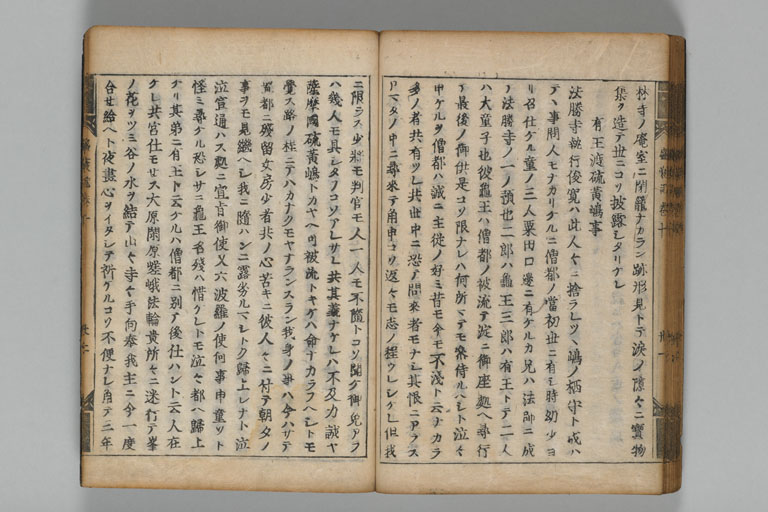 林寺ノ庵室ニ閉籠ナカラン跡形見トテ涙ノ隙々ニ寶物
集ヲ造テ世ニコソ披露シタリケレ
有王渡硫黄嶋事
法勝寺執行俊寛ハ此人々ニ捨ラレツヽ嶋ノ栖守ト成ハ
テヽ事問人モナカリケルニ僧都ノ當初世ニ有シ時幼少ヨ
リ召仕ケル童ノ三人粟田口邊ニ有ケルカ兄ハ法師ニ成
テ法勝寺ノ一ノ預也二郎ハ龜王三郎ハ有王トテ二人
ハ大童子也彼龜王ハ僧都ノ被流テ淀ニ御座処ヘ尋行
テ最後ノ御供是コソ限ナレハ何所マテモ参侍ルヘシト泣々
申ケルヲ僧都ハ誠ニ主従ノ好ミ昔モ今モ不浅ト云ナカラ
多ノ者共有ツレ共世中ニ恐テ問來者モナシ其恨ニアラス
ニ限ラス少将モ判官モ人一人モ不随トコソ聞ケ御免アラ
ハ幾人モ具シタクコソアレサレ共其義ナケレハ不及力誠ヤ
薩摩國硫黄嶋トカヤヘ可被流トキケハ命ナカラフヘシトモ
覺ス路ノ程ニテハカナクモヤナランスラン我身ノ事ハ今ハサテ
置都ニ残留女房少者共ノ心苦キニ彼人々ニ付テ朝夕ノ
事ヲモ見継ヘシ我ニ随ハンニ露劣ルマシトク歸上レナト泣々
泣宣通ハス処ニ宜旨御使又六波羅ノ使何事申童ソト
怪ミ尋ケル恐シサニ龜王名残ハ惜ケレトモ泣々都ヘ歸上
ケリ其弟ニ有王ト云ケルハ僧都ニ別テ後仕ハント云人在
ケレ共宮仕モセス大原閑原嵯峨法輪貴所々ニ迷行テ峯
ノ花ヲツミ谷ノ水ヲ結テ山々寺々手向奉我主ニ今一度
合セ給ヘト夜晝心ヲイタシテ祈ケルコソ不便ナレ角テ三年